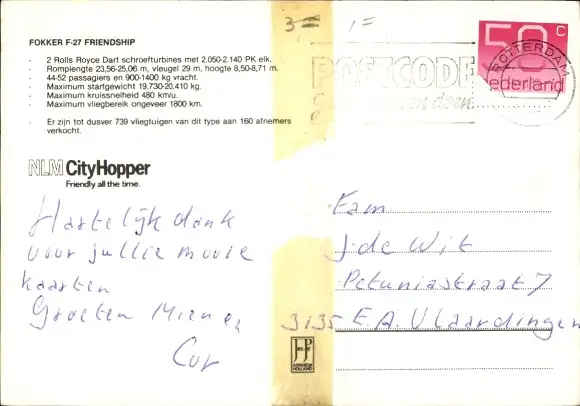 3= 1=
FOKKER F-27 FRIENDSHIP
- 2 Rolls Royce Dart schroefturbines met 2.050-2.140 PK elk.
- Romplengte 23,56-25,06 m, vleugel 29 m, hoogte 8,50-8,71 m.
- 44-52 passagiers en 900-1400 kg vracht.
- Maximum startgewicht 19.730-20.410 kg.
- Maximum kruissnelheid 480 km/u.
- Maximum vliegbereik ongeveer 1800 km.
- Er zijn tot dusver 739 vliegtuigen van dit type aan 160 afnemers
verkocht.
NLM CityHopper
Friendly all the time.
Hartelijk dank
voor jullie mooie
kaarten
Groeten Mien en
Cor
50 c
nederland
ROTTERDAM
POSTCODE
doen
Fam
J. de Wit
Petuniastraat 7
3135 E.A. Vlaardingen
JosPé
ARNHEM
HOLLAND